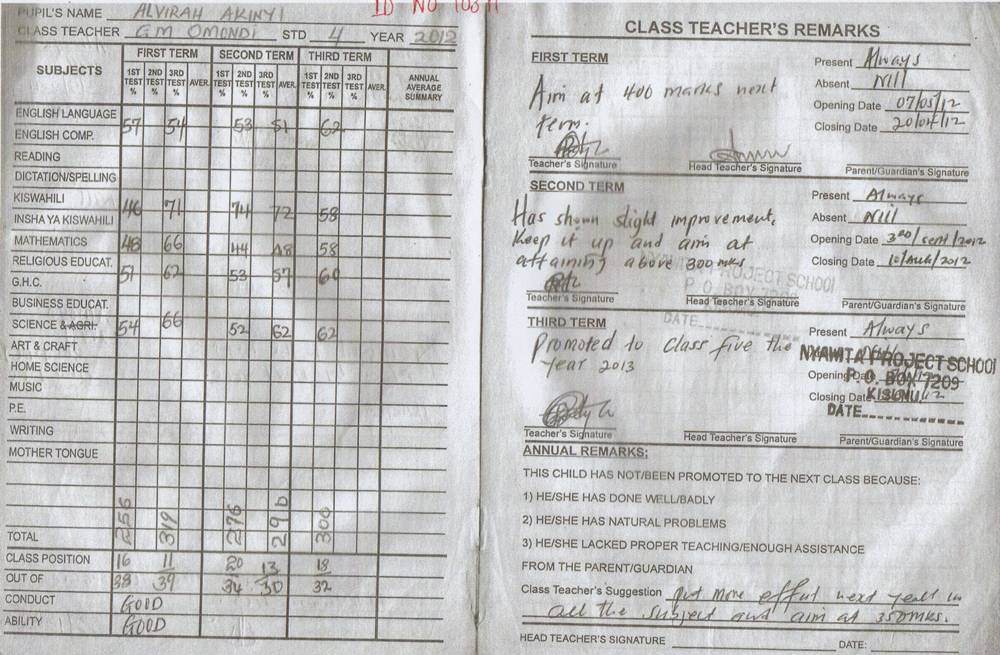 PUPIL'S NAME ALVIRAH AKINYI
ID NO
CLASS TEACHER G.M OMONDI STD 4 YEAR 2012
SUBJECTS FIRST TERM SECOND TERM THIRD TERM ANNUAL AVERAGE SUMMARY
1ST TEST % 2ND TEST % 3RD TEST % AVER. 1ST TEST % 2ND TEST % 3RD TEST % AVER. 1ST TEST % 2ND TEST % 3RD TEST % AVER.
ENGLISH LANGUAGE
57 54 53 51 62
ENGLISH COMP.
READING
DICTATION/SPELLING
KISWAHILI
46 71 74 72 58
INSHA YA KISWAHILI
MATHEMATICS 48 66 44 48 58
RELIGIOUS EDUCAT.
51 62 53 57 60
G.H.C.
BUSINESS EDUCAT.
SCIENCE & AGRI. 54 66 52 62 62
ART & CRAFT
HOME SCIENCE
MUSIC
P.E.
WRITING
MOTHER TONGUE
TOTAL 256 319 276 290 300
CLASS POSITION 16 11 20 13 18
OUT OF 38 39 34 30 32
CONDUCT GOOD
ABILITY GOOD
CLASS TEACHER'S REMARKS
FIRST TERM
Present Always
Absent Nill
Opening Date
Closing Date
Aim at 400 marks next
term.
Teacher's Signature Head Teacher's Signature Parent/Guardian's Signature
SECOND TERM
Present Always
Absent Nill
Opening Date
Closing Date 10/Aug/2012
Has shown slight improvement.
Keep it up and aim at
attaining above 300 mks
NYAWITA PROJECT SCHOOL
P O. BOX
DATE
Teacher's Signature Head Teacher's Signature Parent/Guardian's Signature
THIRD TERM
Present Always
Opening Date
Closing Date
Promoted to class five the
year 2013
NYAWITA PROJECT SCHOOL
P. O. BOX 7209
KISUMU
DATE
Teacher's Signature Head Teacher's Signature Parent/Guardian's Signature
ANNUAL REMARKS:
THIS CHILD HAS NOT/BEEN PROMOTED TO THE NEXT CLASS BECAUSE:
1) HE/SHE HAS DONE WELL/BADLY
2) HE/SHE HAS NATURAL PROBLEMS
3) HE/SHE LACKED PROPER TEACHING/ENOUGH ASSISTANCE
FROM THE PARENT/GUARDIAN
Class Teacher's Suggestion Put more effort next year in
all the subject and aim at 350mks.
HEAD TEACHER'S SIGNATURE DATE: